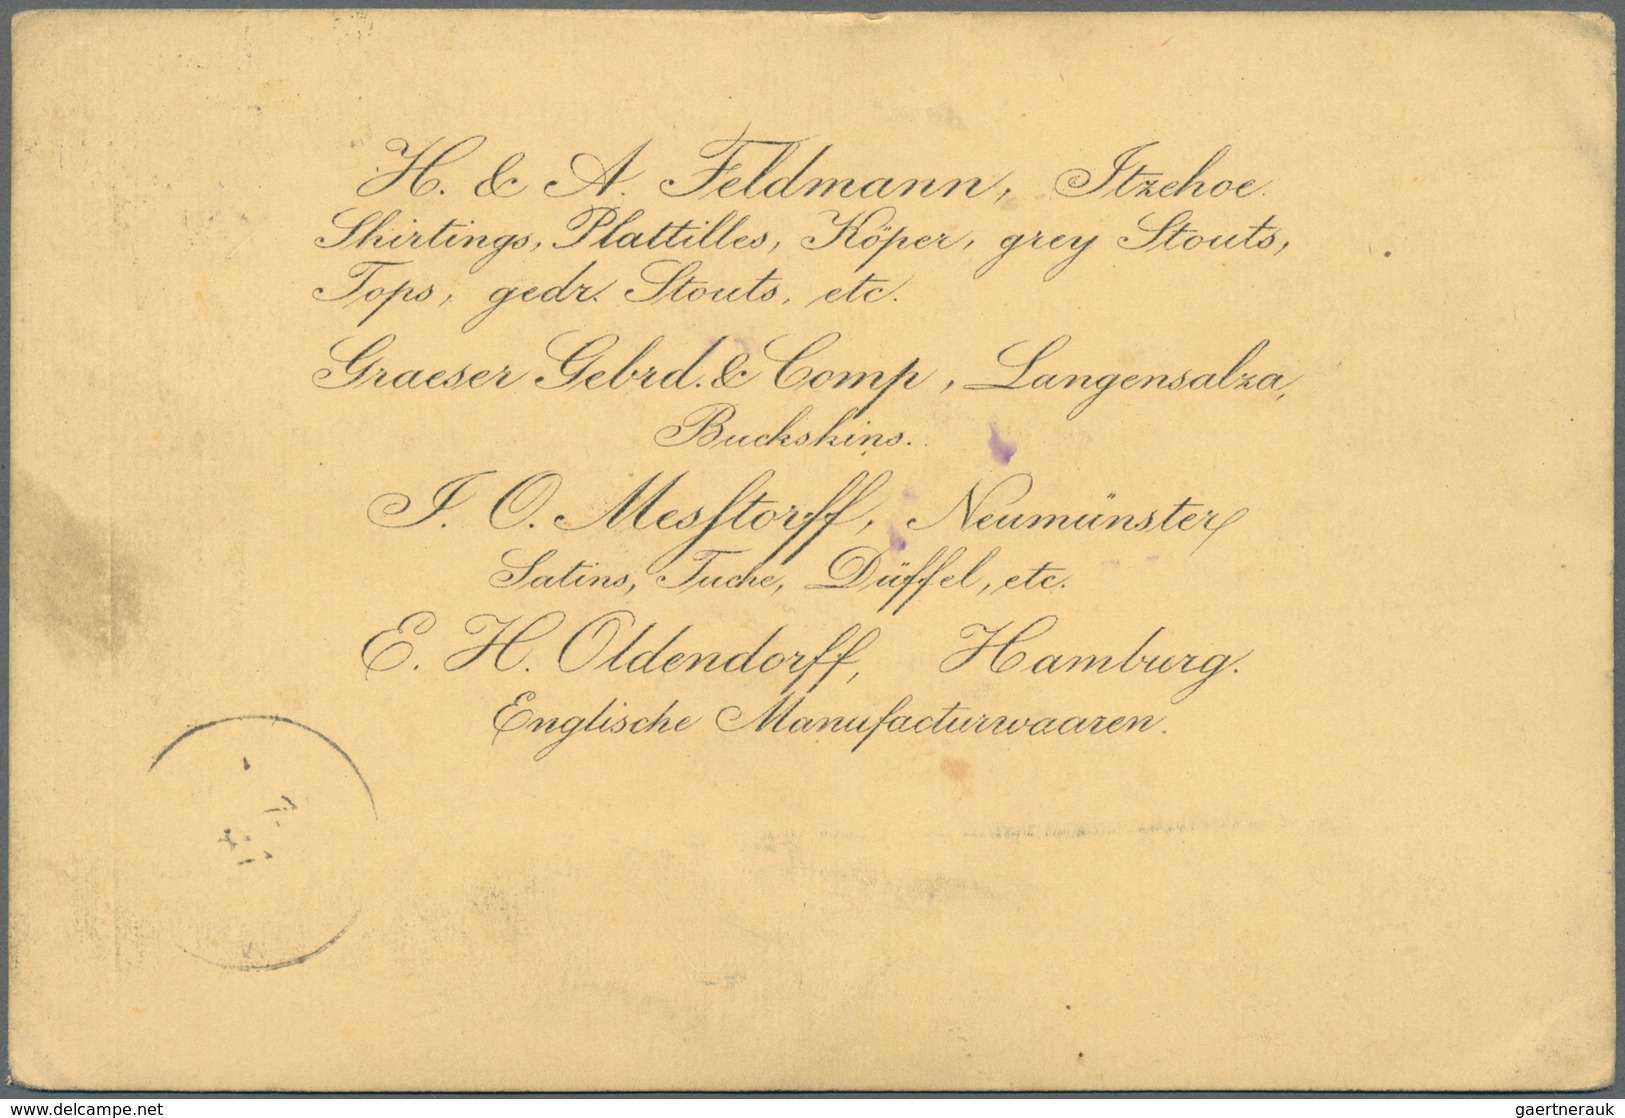 H. & A. Feldmann, Itzehoe.
Shirtings, Plattilles, Köper, grey Stouts,
Tops, gedr. Stouts, etc.
Graeser Gebrd. & Comp, Langensalza,
Buckskins.
J. O. Messtorff, Neumünster
Satins, Tuche, Düffel, etc.
E. H. Oldendorff, Hamburg.
Englische Manufacturwaaren.
www.delcampe.net
gaertnerauk